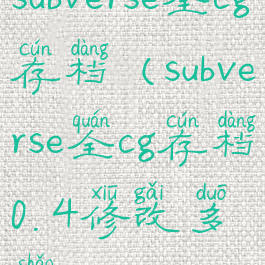 subverse全cg
cún dàng
存档(subve
quán cún dàng
rse全cg存档
xiū gǎi duō
0.4修改多
shǎo